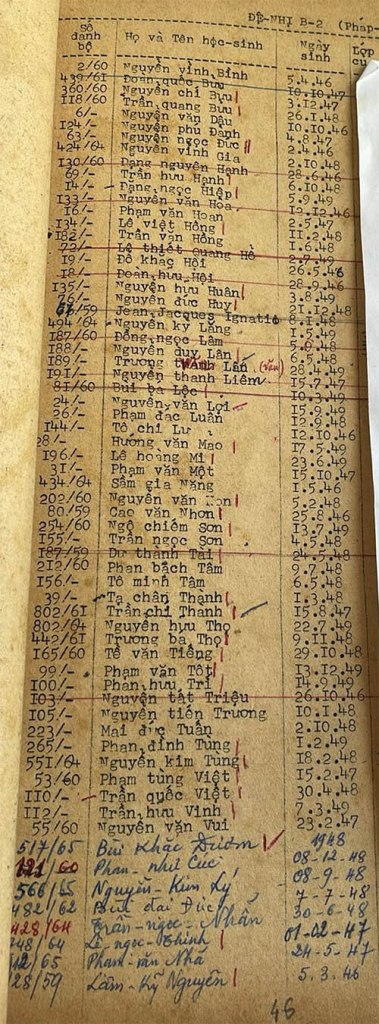 ĐỆ-NHỊ B-2 (Pháp-
Số danh bộ Họ và Tên học-sinh Ngày sinh Lớp cũ
2/60 Nguyễn vĩnh Bình 5.4.46
439/61 Đoàn quốc Bưu 10.10.47
360/60 Nguyễn chí Bưu 3.12.47
118/60 Trần quang Bưu 26.1.48
6/- Nguyễn văn Dậu 10.10.46
124/- Nguyễn phú Danh 4.8.47
63/- Nguyễn ngọc Đức 2.4.46
424/64 Nguyễn vĩnh Gia 2.10.48
130/60 Đặng nguyên Hạnh 28.6.46
69/- Trần hữu Hạnh 6.10.48
14/- Đặng ngọc Hiệp 5.9.49
133/- Nguyễn văn Hòa 12.12.46
16/- Phạm văn Hoan 2.5.47
134/- Lê việt Hồng 11.2.48
182/- Trần văn Hồng 1.6.48
72/- Lê thiết Quang Hồ 2.7.49
19/- Đỗ khắc Hội 26.5.46
18/- Đoàn hữu Hội 28.9.46
135/- Nguyễn hữu Huân 3.8.49
76/- Nguyễn đức Huy 21.12.48
/59 Jean Jacques Ignatio
494/64 Nguyễn kỳ Lăng
187/60 Đồng ngọc Lâm
188/- Nguyễn duy Lân 6.5.48
189/- Trương Lân (Văn) 28.4.49
191/- Nguyễn thanh Liêm 15.7.47
81/60 Bùi bá Lộc 10.3.49
24/- Nguyễn văn Lợi 15.9.49
26/- Phạm đắc Luân 12.9.48
144/- Tô chí Lư 12.10.46
28/- Hướng văn Mao 17.5.49
196/- Lê hoàng Mi 23.6.49
31/- Phạm văn Một 15.10.47
434/64 Sầm gia Năng 1.5.46
202/60 Nguyễn văn 5.2.48
80/59 Cao văn Nhơn 25.8.46
254/60 Ngô chiếm Sơn 13.7.49
155/- Trần ngọc Sơn 4.5.48
187/59 Dư thành Tài 24.5.48
212/60 Phan bách Tâm 9.7.48
156/- Tô minh Tâm 6.5.48
39/- Tạ chân Thành 1.3.48
802/61 Trần chí Thanh 15.8.47
802/64 Nguyễn hữu Thọ 22.7.49
442/61 Trương bá Thọ 9.11.48
165/60 Tề văn Tiếng 29.10.48
99/- Phạm văn Tốt 13.12.49
100/- Phan hữu Trí 14.9.49
103/- Nguyễn tất Triệu 26.10.46
105/- Nguyễn tiến Trương 10.1.48
223/- Mai đức Tuấn 2.10.48
265/- Phan đình Tùng 1.2.49
551/64 Nguyễn kim Tùng 18.2.48
53/60 Phạm tùng Việt 15.2.47
110/- Trần quốc Việt 30.4.48
112/- Trần hữu Vinh 7.3.49
55/60 Nguyễn văn Vui 23.2.47
517/65 Bùi Khắc 1948
/60 Phan như Cúc 08-12-48
566/65 Nguyễn-Kim Ký 08-9-48
482/62 Bùi đại Đức 7-7-48
428/64 Trần-ngọc-Nhẫn 30-6-48
248/64 Lê-ngọc-Thinh 01-02-47
/65 Phan-văn Nhã 24-5-47
28/59 Lâm-Kỹ Nguyên 5.3.46
46